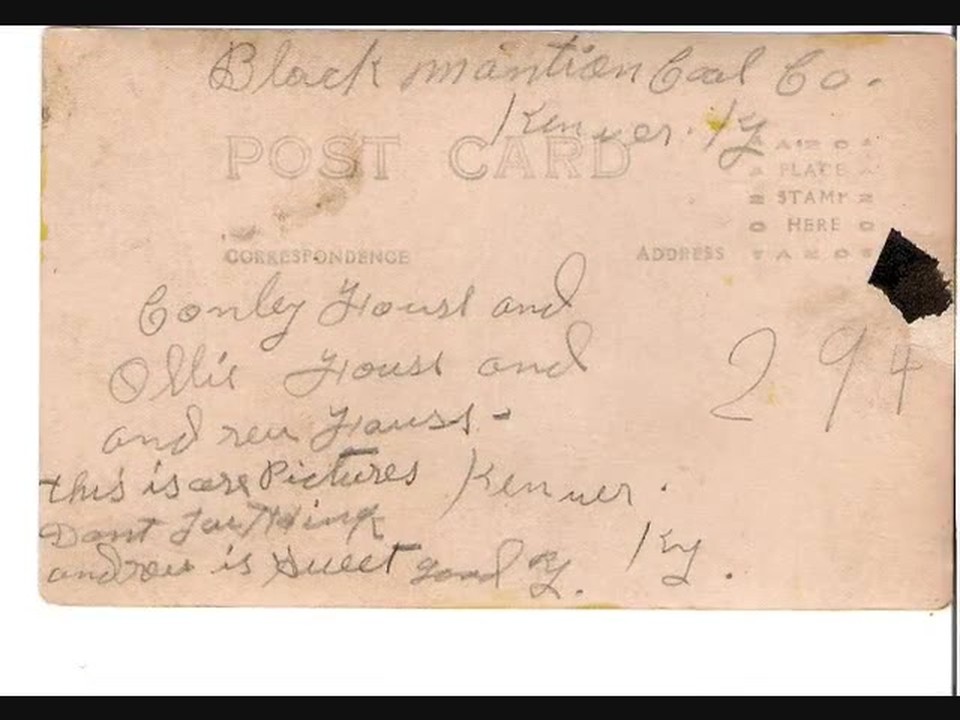 Black mantion Coal Co.
Kenver. Ky
POST CARD
PLACE
STAMP
HERE
CORRESPONDENCE
ADDRESS
Conley Foust and
Ollie Foust and
andrew Fouss-
294
this is are Pictures
Kenver.
Dont You Think
Ky.
andrew is Sweet good By.